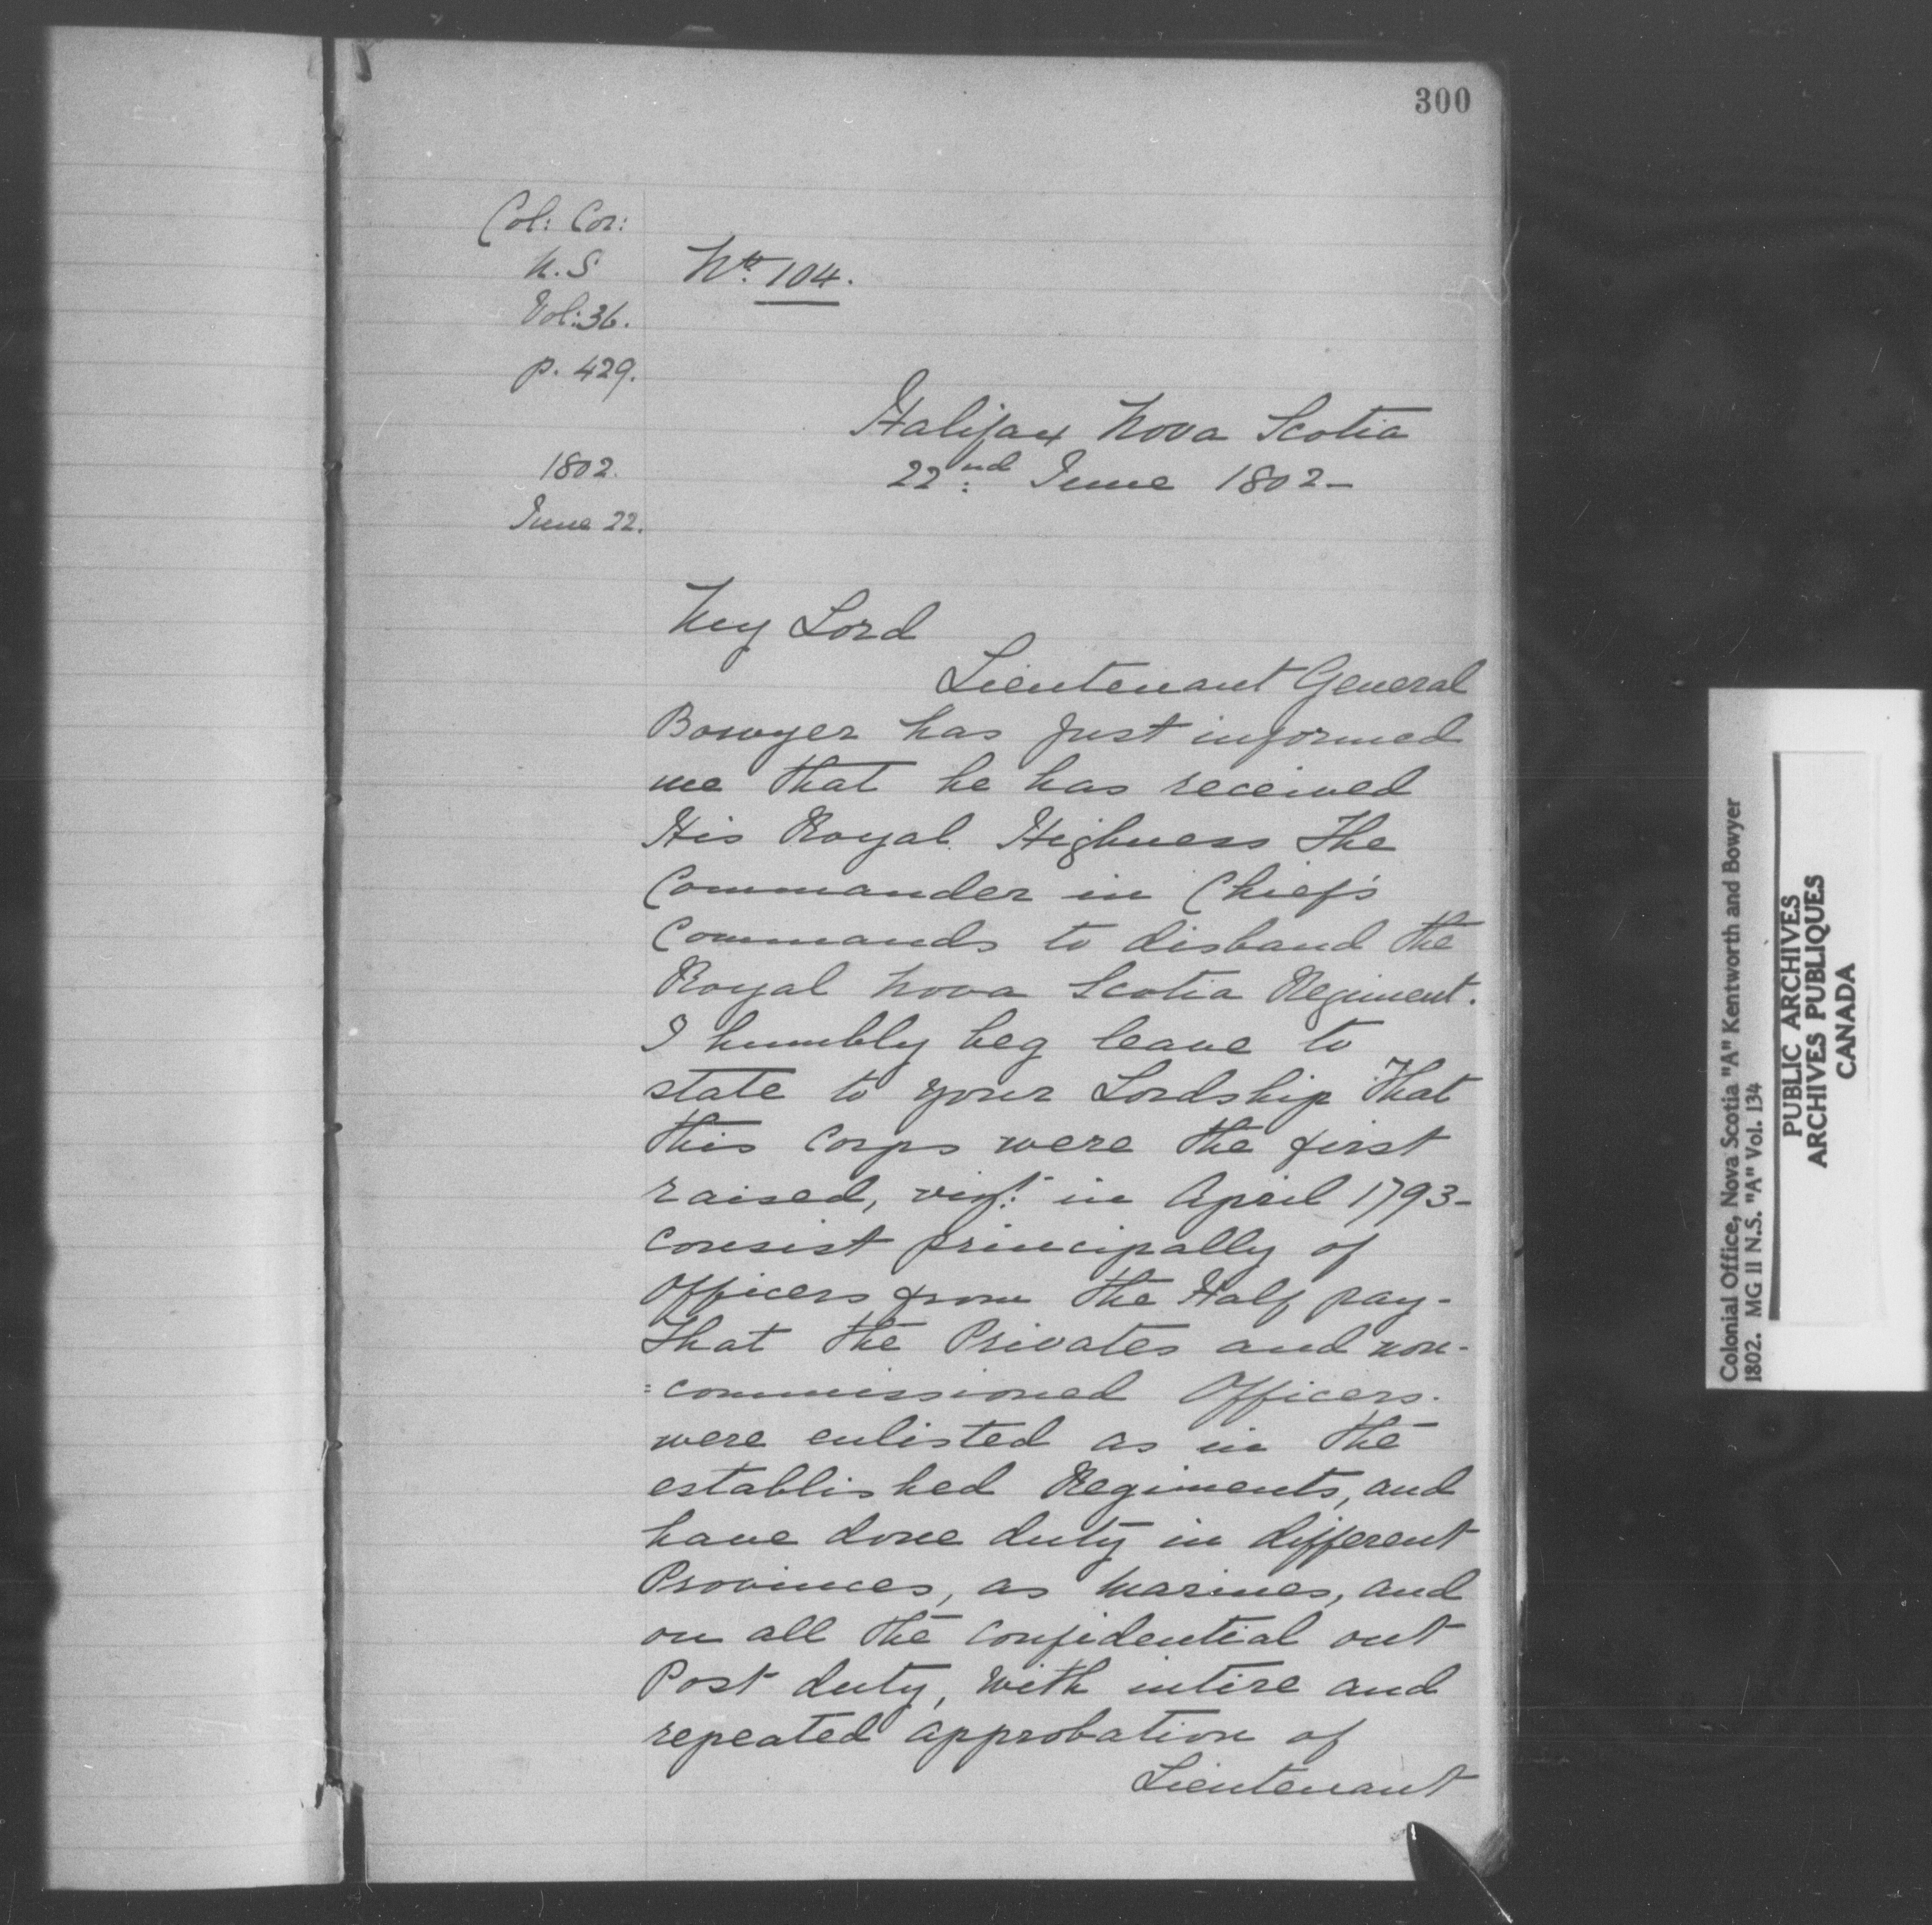 300
Col: Cor:
N.S
Vol: 36.
p. 429.
1802.
June 22.
No. 104.
Halifax Nova Scotia
22nd June 1802-
My Lord
Lieutenant General
Bowyer has just informed
me that he has received
His Royal Highness The
Commander in Chief's
Commands to disband the
Royal Nova Scotia Regiment.
I humbly beg leave to
state to your Lordship That
this Corps were the first
raised, vizt. in April 1793-
consist principally of
Officers from the Half pay-
that the Privates and non-
=commissioned Officers.
were enlisted as in the
established Regiments, and
have done duty in different
Provinces, as Marines, and
on all the confidential out
Post duty, with intire and
repeated approbation of
Lieutenant
Colonial Office, Nova Scotia "A" Kentworth and Bowyer
1802. MG 11 N.S. "A" Vol. 134
PUBLIC ARCHIVES
ARCHIVES PUBLIQUES
CANADA